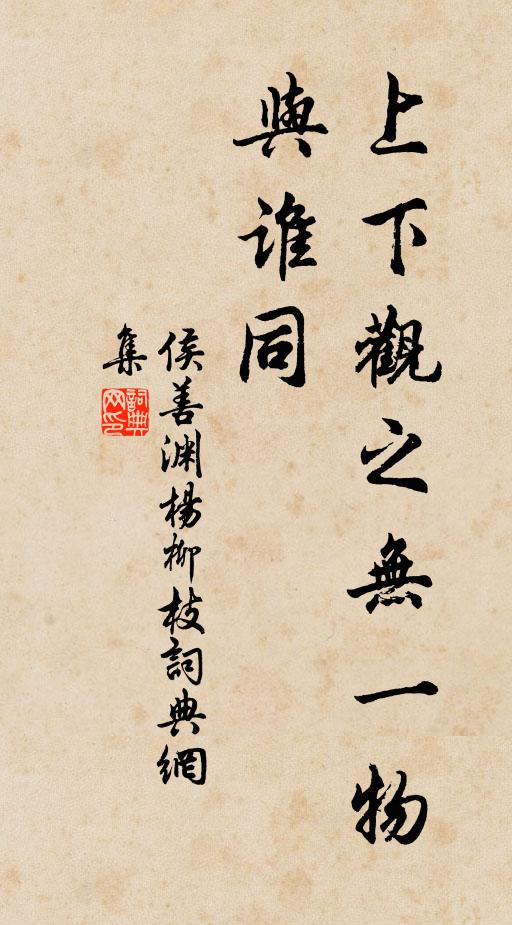 上下觀之無一物
與誰同
侯善渊楊柳枝詞典網
集
詞典
网印